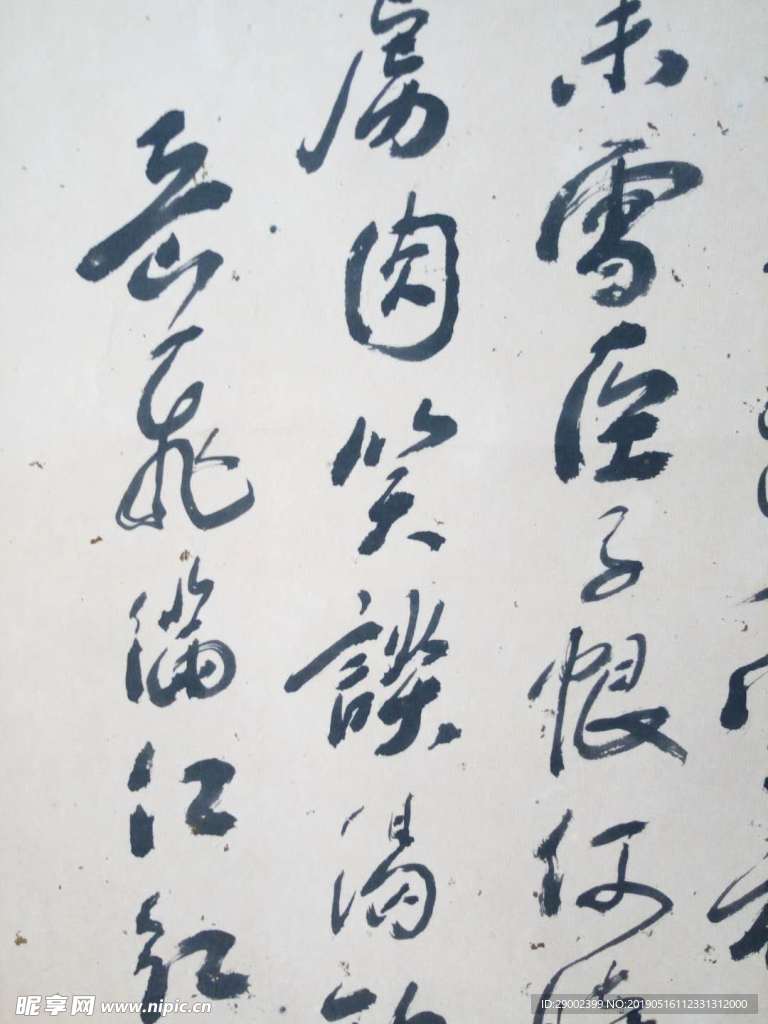 未雪臣子恨何时
虏肉笑谈渴饮
岳飞满江红
昵享网 www.nipic.cn
ID:29002399 NO:20190516112331312000